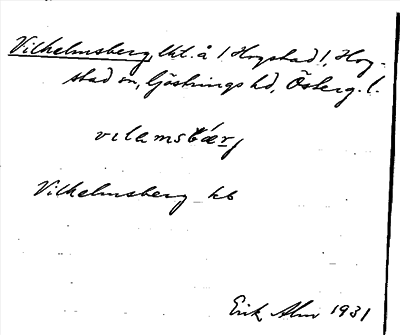 Vilhelmsberg, lht. å 1 Hogstad 1, Hog-
stad sn, Göstrings hd, Österg. l.
vilamsbærj
Vilhelmsberg kb
Erik Alm 1931